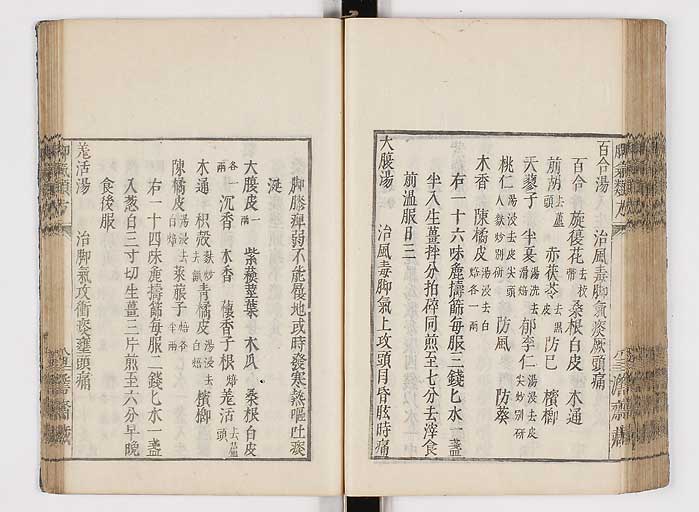 百合湯　治風毒脚氣痰厥頭痛
百合　旋覆花去枝幣　桑根白皮　木通
前胡去蘆頭　赤茯苓去黒皮　防巳　檳榔
天蓼子　半夏湯洗去滑焙　郁李仁湯浸去皮尖炒別研
桃仁湯浸去皮尖頭人麩炒別研　防風　防葵
木香　陳橘皮湯浸去白焙各一兩
右一十六味麄擣篩每服三錢匕水一盞
半入生薑拌分拍碎同煎至七分去滓食
前溫服日三
大腹湯　治風毒脚氣上攻頭目昏眩時痛
脚膝痺弱不能履地或時發寒熱嘔吐痰
涎
大腹皮一　紫蘓莖葉　木瓜　桑根白皮
各一兩　沉香　木香　蘹香子根焙　羗活去蘆頭
木通　枳殼麩炒去瓤　青橘皮湯浸去白焙　檳榔
陳橘皮湯浸去白焙　萊菔子焙各半兩
右一十四味麄擣篩每服二錢匕水一盞
入葱白三寸切生薑三片煎至六分早晚
食後服
羗活湯　治脚氣攻衝痰壅頭痛